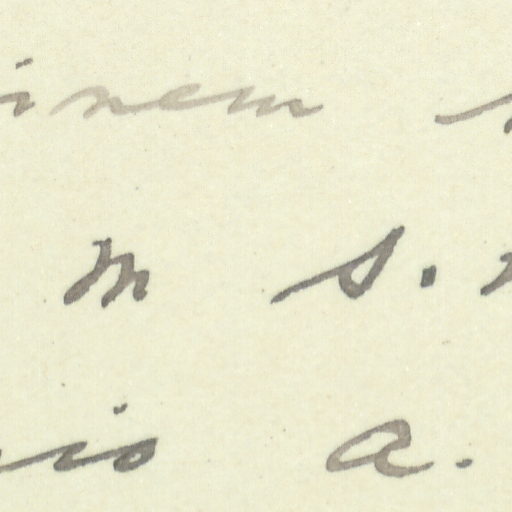 inem
m s.
is a.